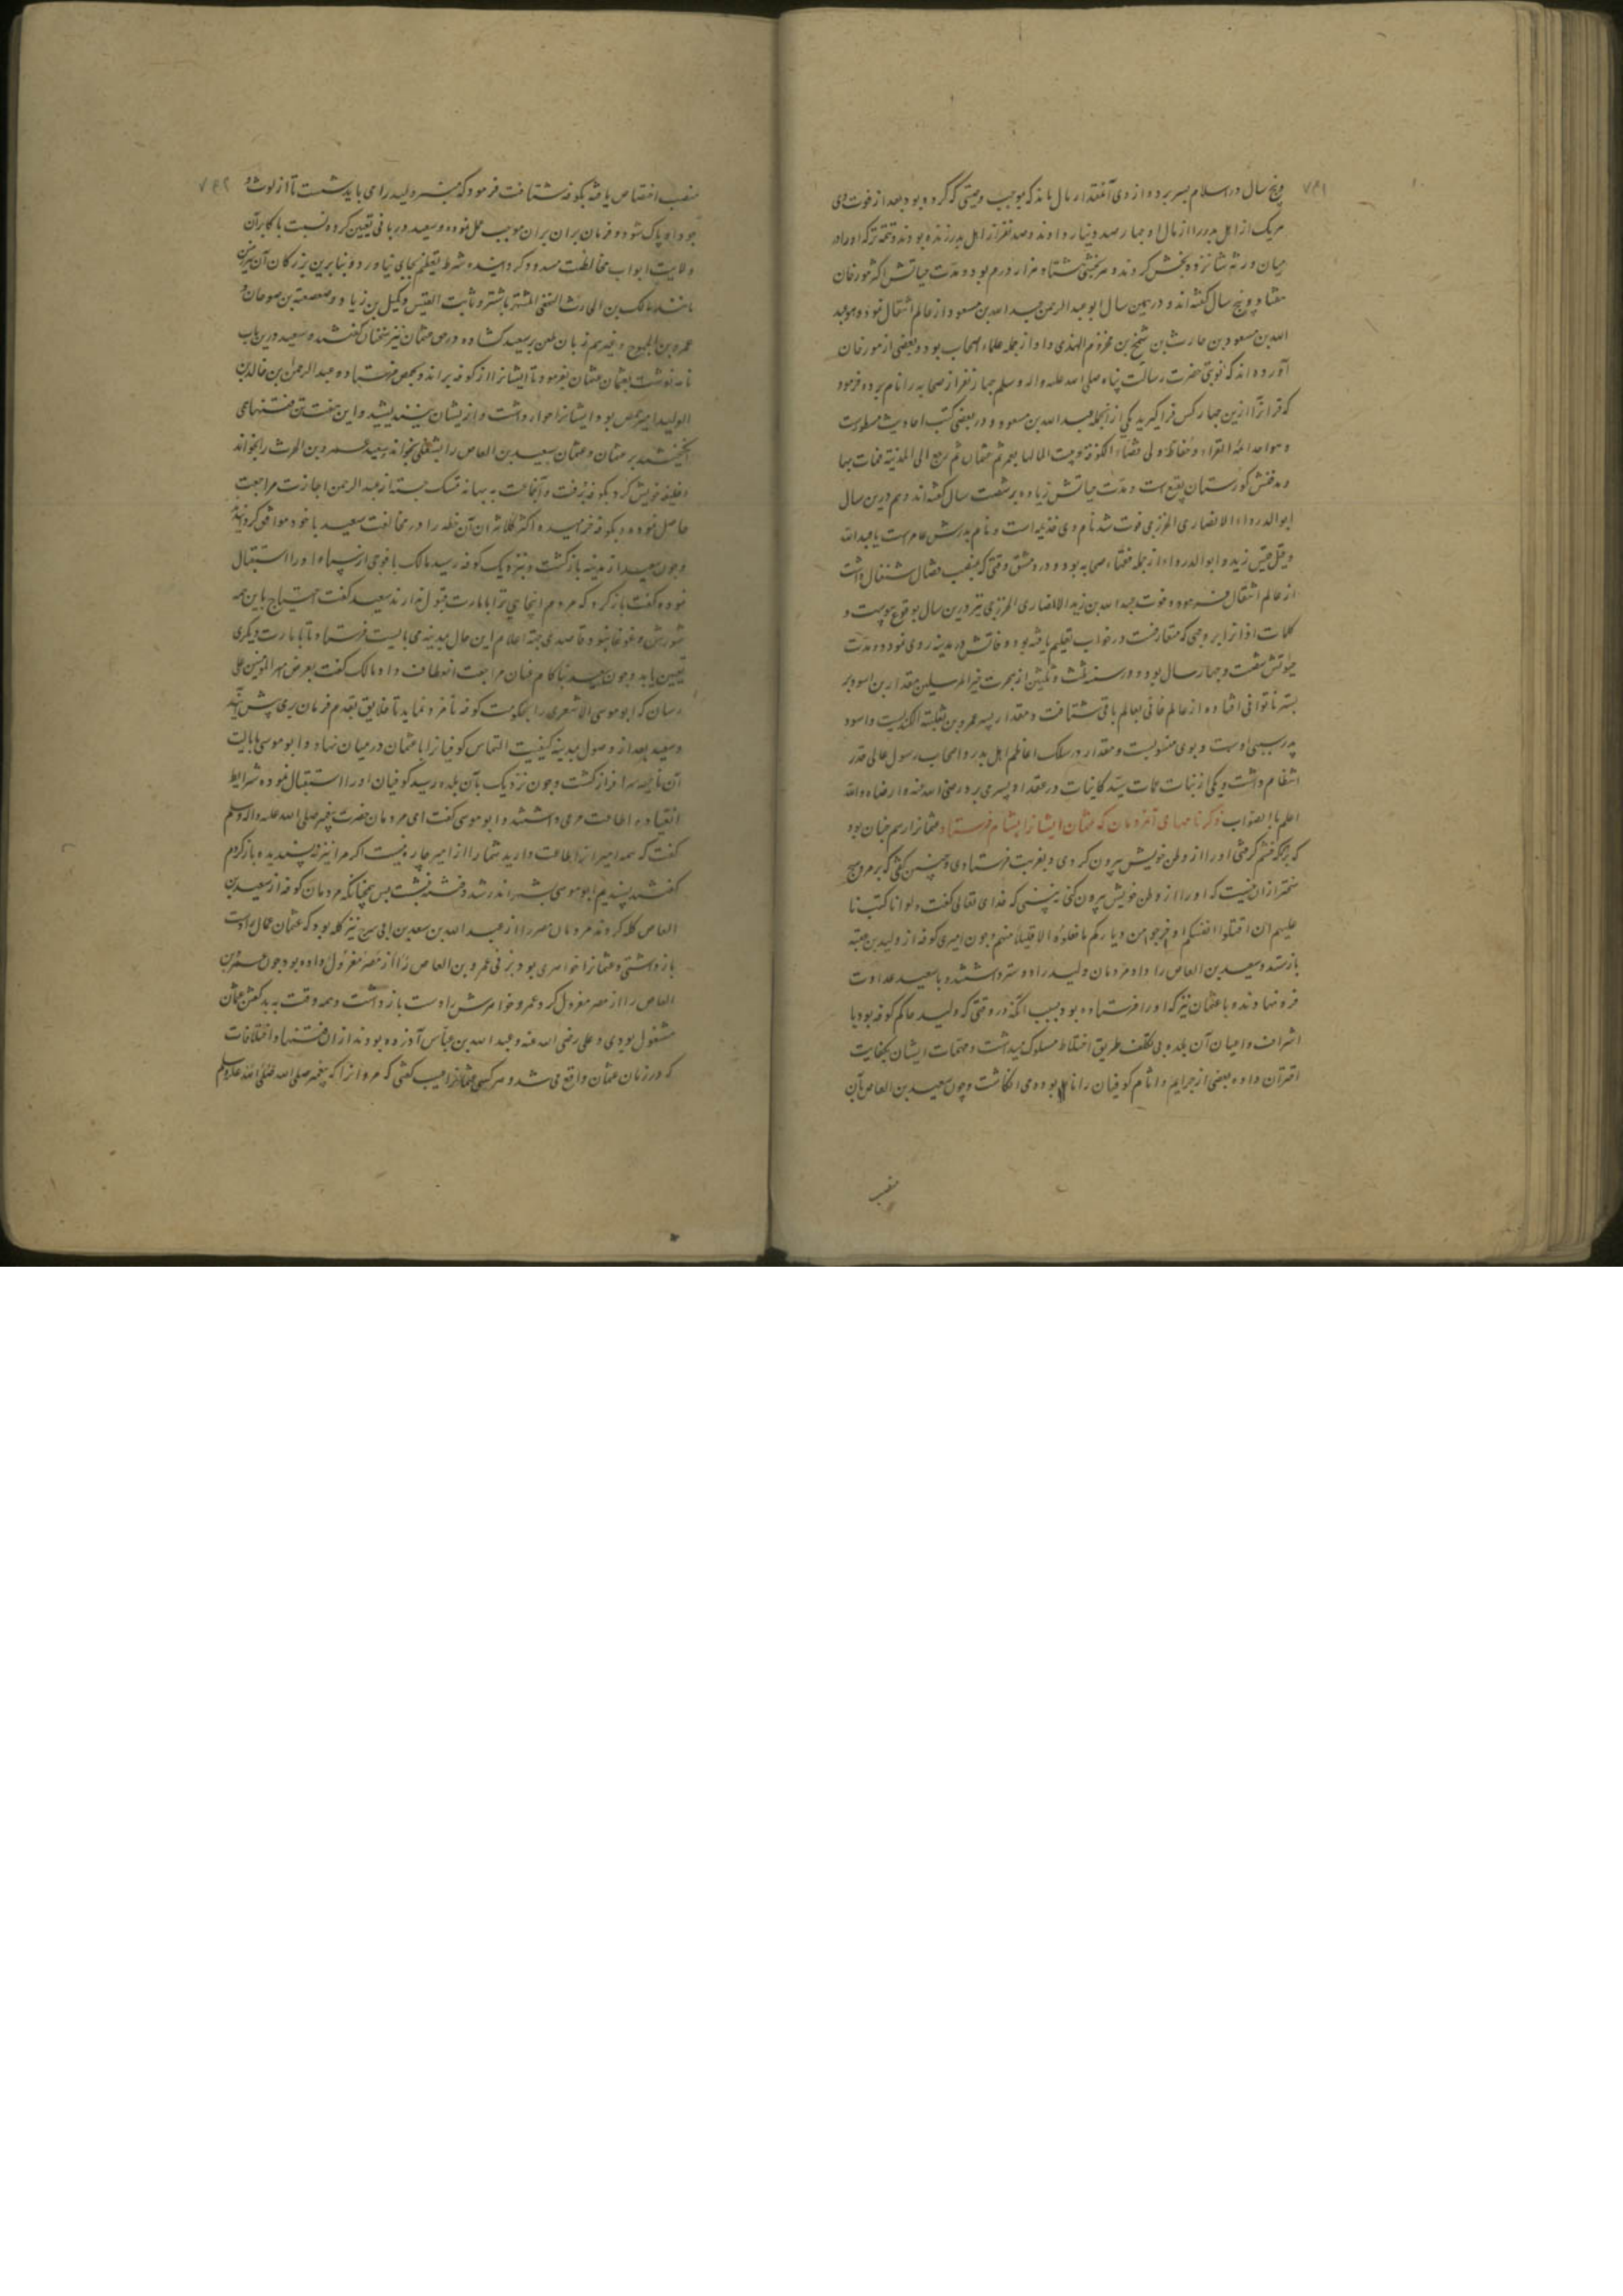 ۷۶۱
و پنج سال در اسلام بسر برده از وی آنمقدار مال ماند که بموجب وصیتی که کرده بود بعد از فوت وی
هریک از اهل بدر را از مال او چهار صد دینار دادند و صد نفر از اهل بدر زنده بودند و تتمه ترکه او را در
میان ورثه شانزده بخش کردند و هر بخشی هشتاد هزار درم بود و مدت حیاتش اکثر مورخان
هفتاد و پنج سال گفته اند و در همین سال ابو عبد الرحمن عبد الله بن مسعود از عالم انتقال نمود و هو عبد
الله بن مسعود بن حارث بن شمخ بن مخزوم الهذلی و او از جمله علماء اصحاب بود و بعضی از مورخان
آورده اند که نوبتی حضرت رسالت پناه صلی الله علیه واله وسلم چهار نفر از صحابه را نام برده فرمود
که قرآن را ازین چهار کس فرا گیرید یکی از انجمله عبد الله بن مسعود و در بعضی کتب احادیث مسطورست
و هو احد ائمة القراء و حفاظه ولی قضاء الکوفة و بیت المال بها لعمر ثم عثمان ثم رجع الی المدینة فمات بها
و مدفنش گورستان بقیع است و مدت حیاتش زیاده بر شصت سال گفته اند و هم درین سال
ابو الدرداء الانصاری الخزرجی فوت شد نام وی خذیمه است و نام پدرش عامرست یا عبد الله
و قیل قیس زید و ابو الدرداء از جمله فقهاء صحابه بود و در دمشق وقتی که بمنصب قضا اشتغال داشت
از عالم انتقال فرمود و فوت عبد الله بن زید الانصاری الخزرجی نیز درین سال بوقوع پیوست و
کلمات اذانرا بر وجهی که متعارفست در خواب تعلیم یافته بود وفاتش در مدینه روی نمود و مدت
حیوتش شصت و چهار سال بود و در سنه ثلث و ثلثین از هجرت خیر المرسلین مقداد بن اسود بر
بستر ناتوانی افتاده از عالم فانی بعالم باقی شتافت و مقداد پسر عمرو بن ثعلبة الکندیست و اسود
پدر سببی اوست و بوی منسوبست و مقداد در سلک اعاظم اهل بدر و اصحاب رسول عالی قدر
انتظام داشت و یکی از بنات عمات سید کاینات در عقد او بسر می برد رضی الله عنه و ارضاه والله
اعلم بالصواب ذکر نامهای آنمردمان که عثمان ایشانرا بشام فرستاد عثمانرا رسم چنان بود
که بر هرکه خشم گرفتی او را از وطن خویش بیرون کردی و بغربت فرستادی و چنین گفتی که بر مردم هیچ
سخت‌تر ازان نیست که او را از وطن خویش بیرون کنی نه بینی که خدای تعالی گفت ولو انا کتبنا
علیهم ان اقتلوا انفسکم او اخرجوا من دیارکم ما فعلوه الا قلیلا منهم و چون امیری کوفه از ولید بن عقبه
بازستد و سعید بن العاص را داد مردمان ولید را دوستر داشتند و با سعید عداوت
فرو نهادند و با عثمان نیز که او را فرستاده بود بسبب انکه در وقتی که ولید حاکم کوفه بود با
اشراف و اعیان آن بلده بی تکلف طریق اختلاط مسلوک میداشت و مهمات ایشان بکفایت
اقتران داده بعضی از جرایم و اثام کوفیان را نابوده می انگاشت و چون سعید بن العاص بآن
منصب
۷۶۲
منصب اختصاص یافته بکوفه شتافت فرمود که منبر ولید را می باید شست تا از لوث
وجود او پاک شود و فرمان بران بران موجب عمل نموده و سعید دربانی تعیین کرده نسبت با کابر آن
ولایت ابواب مخالطت مسدود گردانیده شرط تعظیم بجای نیاورد و بنابرین بزرگان آن سرزمین
مانند مالک بن الحارث النخعی المشتهر باشتر و ثابت القیس و کمیل بن زیاد و صعصعة بن صوحان و
عمرو بن الجموح و غیرهم زبان طعن بر سعید گشاده و در حق عثمان نیز سخنان گفتند و سعید درین باب
نامه نوشت بعثمان عثمان بفرمود تا ایشانرا از کوفه براند و بحمص فرستاد و عبد الرحمن بن خالد بن
الولید امیر حمص بود ایشانرا خوار داشت و از یشان نیندیشید و این هفت تن فتنهامی
انگیختند بر عثمان و عثمان سعید بن العاص را بشغلی بخواند سعید عمرو بن الحرث را بخواند
و خلیفه خویش کرد بکوفه و برفت و آنجماعت به بهانه تمسک جسته از عبد الرحمن اجازت مراجعت
حاصل نمودند و بکوفه خرامیده اکثر کلانتران آن خطه را در مخالفت سعید با خود موافق گردانیدند
و چون سعید از مدینه بازگشت و بنزدیک کوفه رسید مالک با فوجی از سپاه او را استقبال
نموده گفت باز گرد که مردم اینجایی ترا بامارت قبول ندارند سعید گفت احتیاج باین همه
شورش و غوغا نبود قاصدی جهة اعلام این حال بمدینه می بایست فرستاد تا بامارت دیگری
تعیین یابد و چون سعید ناکام عنان مراجعت انعطاف داد مالک گفت بعرض امیر المؤمنین علی
رسان که ابو موسی الاشعری را بحکومت کوفه نامزد نماید تا خلایق بقدم فرمان بری پیش آیند
و سعید بعد از وصول بمدینه کیفیت التماس کوفیانرا با عثمان در میان نهاد و ابو موسی بایالت
آن ناحیه سرافراز گشت و چون نزدیک بآن بلده رسید کوفیان او را استقبال نموده شرایط
انقیاد و اطاعت مرعی داشتند و ابو موسی گفت ای مردمان حضرت پیغمبر صلی الله علیه واله وسلم
گفت که همه امیرانرا اطاعت دارید شما را از امیر چاره نیست اگر مرا نیز نه پسندید باز گردم
گفتند پسندیم ابو موسی بشهر اندر شد و فتنه بنشست پس همچنانکه مردمان کوفه از سعید بن
العاص گله کردند مردمان مصر را از عبد الله بن سعد بن ابی سرح نیز گله بود که عثمان عمال را دست
باز داشتی و عثمانرا خواهری بود بزنی عمرو بن العاص را از مصر معزول داده بود چون عمرو بن
العاص را از مصر معزول کرد عمرو خواهرش را دست باز داشت و همه وقت به بد گفتن عثمان
مشغول بودی و علی رضی الله عنه و عبد الله بن عباس آزرده بودند از ان فتنها و اختلافات
که در زمان عثمان واقع می شد و هر کسی عثمانرا عیب گفتی که مروانرا که پیغمبر صلی الله علیه وسلم